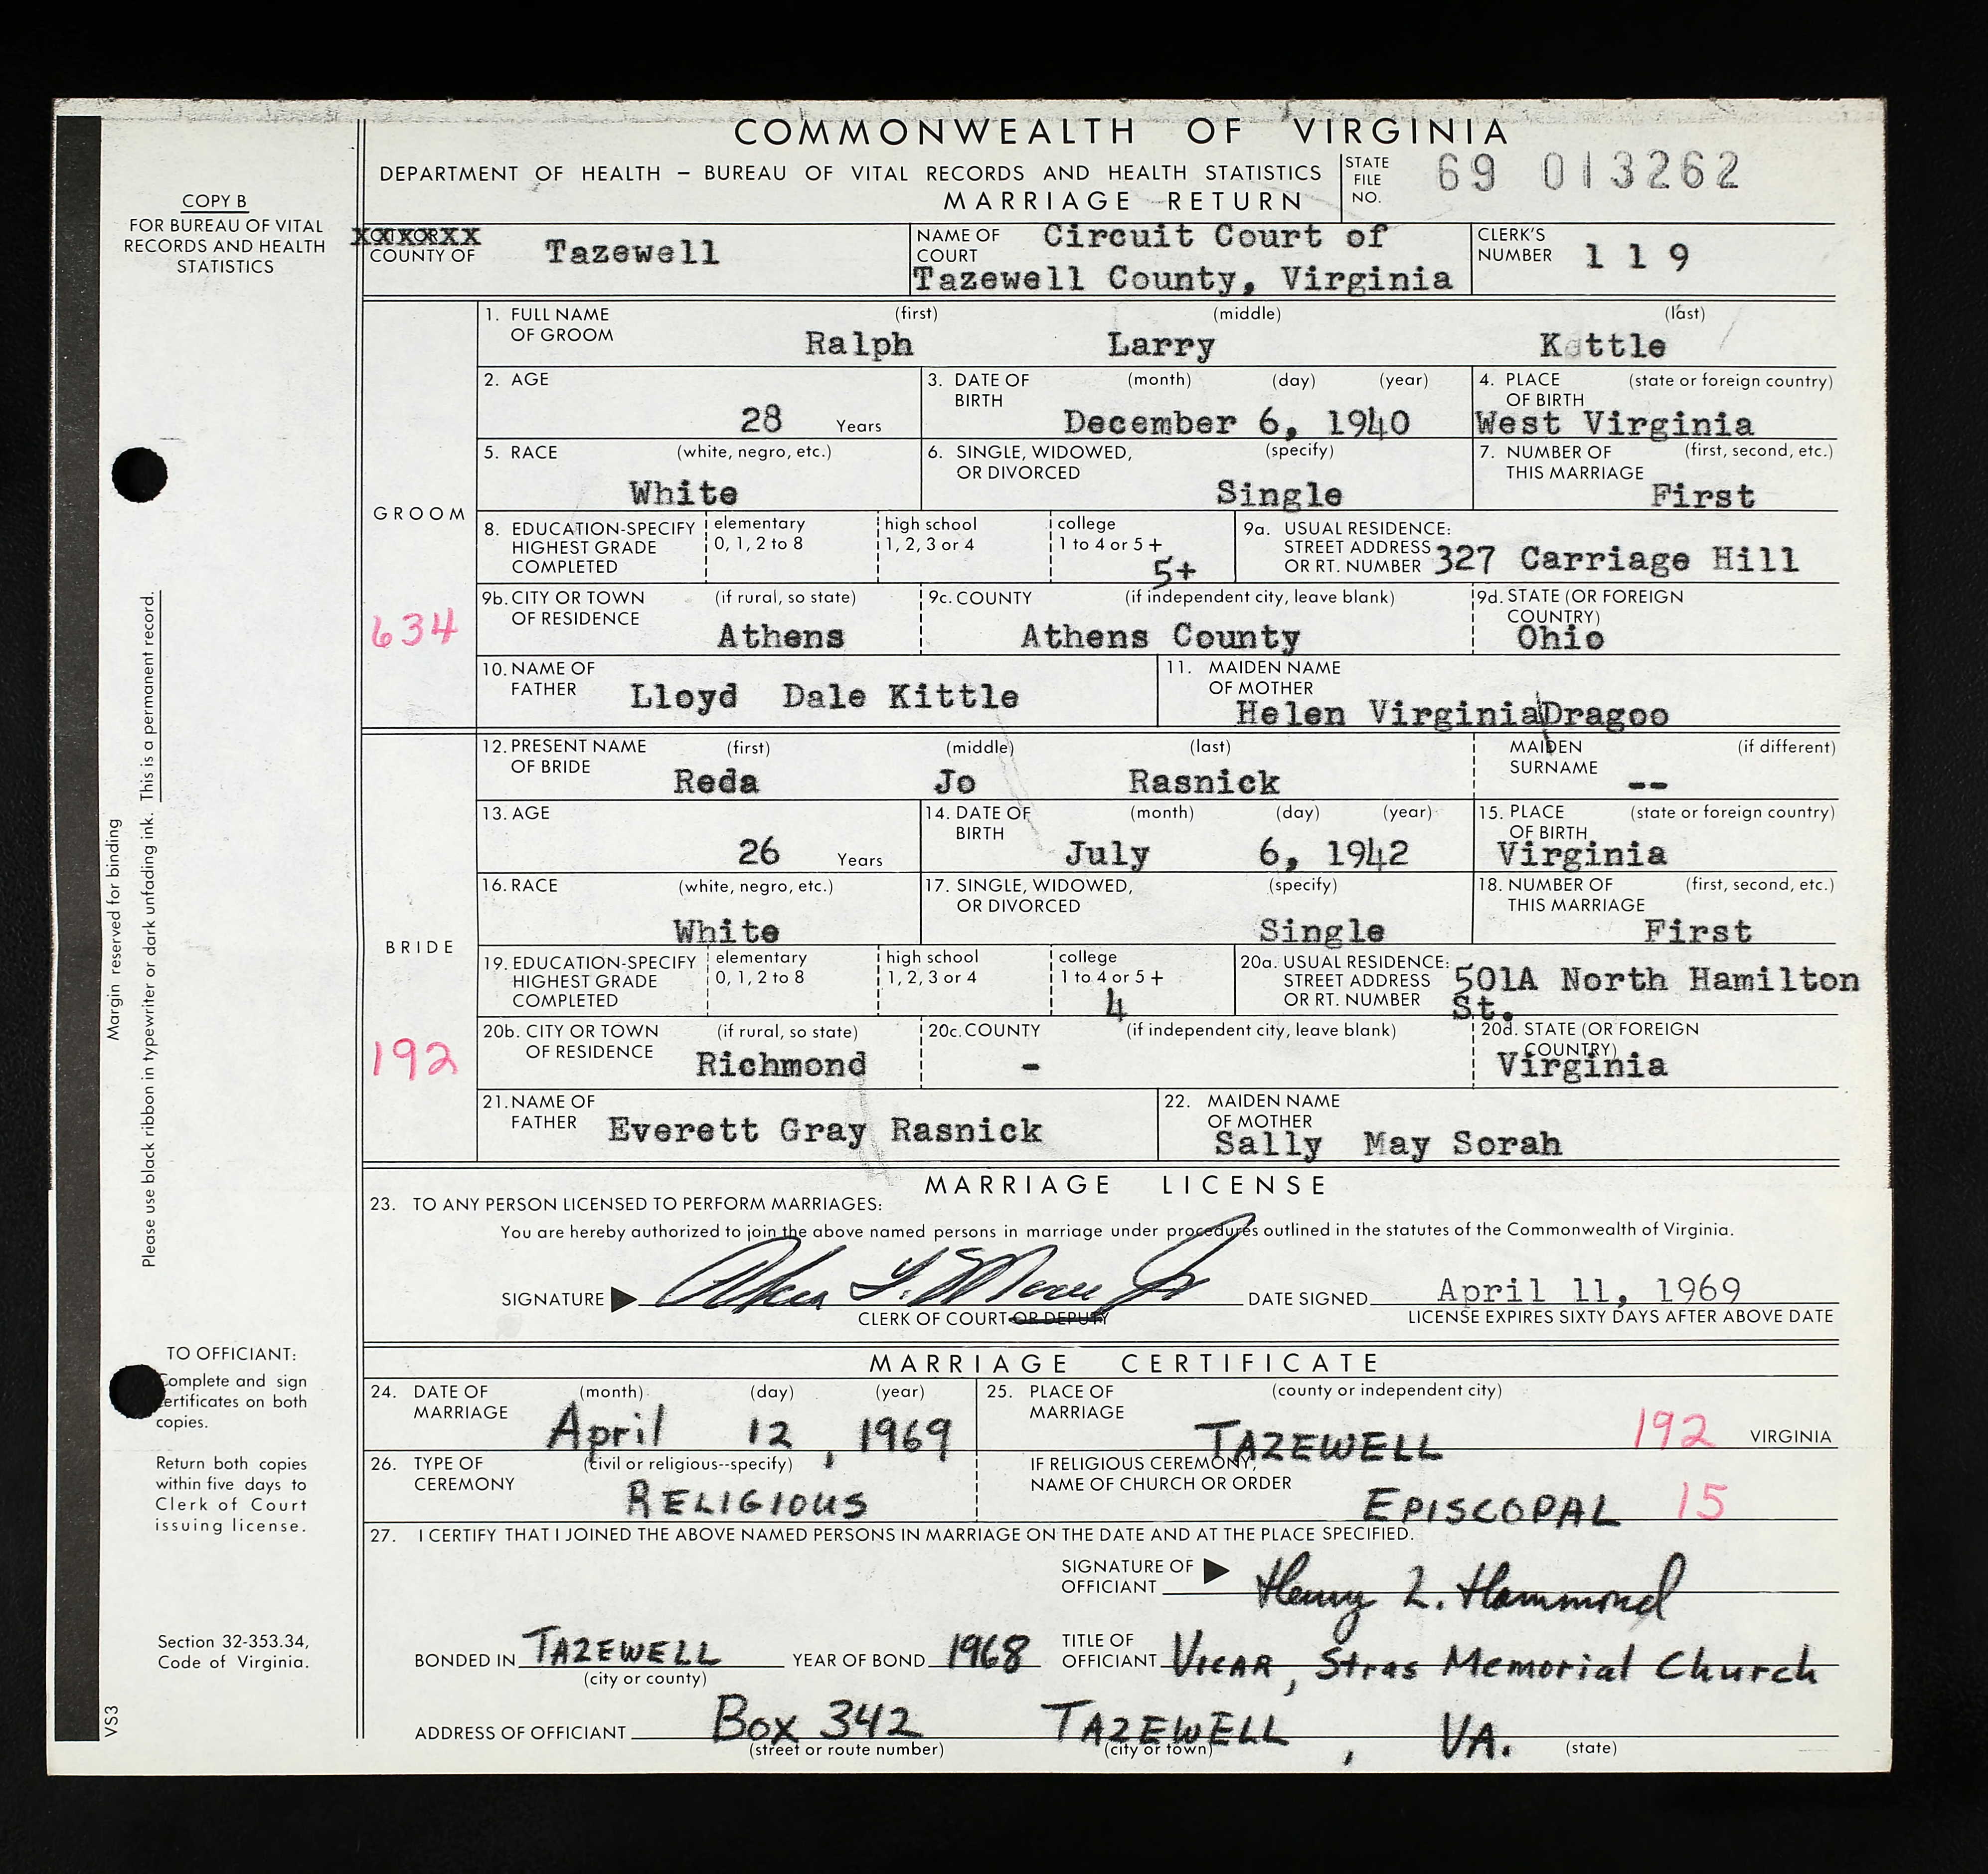 COMMONWEALTH OF VIRGINIA
DEPARTMENT OF HEALTH – BUREAU OF VITAL RECORDS AND HEALTH STATISTICS
MARRIAGE RETURN
STATE FILE NO. 69 013262
COPY B
FOR BUREAU OF VITAL
RECORDS AND HEALTH
STATISTICS
COUNTY OF Tazewell
NAME OF COURT Circuit Court of
Tazewell County, Virginia
CLERK'S NUMBER 1 1 9
GROOM
634
1. FULL NAME OF GROOM (first) (middle) (last)
Ralph Larry Kttle
2. AGE 28 Years
3. DATE OF BIRTH (month) (day) (year)
December 6, 1940
4. PLACE OF BIRTH (state or foreign country)
West Virginia
5. RACE (white, negro, etc.)
White
6. SINGLE, WIDOWED, OR DIVORCED (specify)
Single
7. NUMBER OF THIS MARRIAGE (first, second, etc.)
First
8. EDUCATION-SPECIFY HIGHEST GRADE COMPLETED
elementary 0, 1, 2 to 8
high school 1, 2, 3 or 4
college 1 to 4 or 5+
5+
9a. USUAL RESIDENCE: STREET ADDRESS OR RT. NUMBER 327 Carriage Hill
9b. CITY OR TOWN OF RESIDENCE (if rural, so state)
Athens
9c. COUNTY (if independent city, leave blank)
Athens County
9d. STATE (OR FOREIGN COUNTRY)
Ohio
10. NAME OF FATHER Lloyd Dale Kittle
11. MAIDEN NAME OF MOTHER
Helen Virginia Dragoo
BRIDE
192
12. PRESENT NAME OF BRIDE (first) (middle) (last)
Reda Jo Rasnick
MAIDEN SURNAME (if different)
--
13. AGE 26 Years
14. DATE OF BIRTH (month) (day) (year)
July 6, 1942
15. PLACE OF BIRTH (state or foreign country)
Virginia
16. RACE (white, negro, etc.)
White
17. SINGLE, WIDOWED, OR DIVORCED (specify)
Single
18. NUMBER OF THIS MARRIAGE (first, second, etc.)
First
19. EDUCATION-SPECIFY HIGHEST GRADE COMPLETED
elementary 0, 1, 2 to 8
high school 1, 2, 3 or 4
college 1 to 4 or 5+
4
20a. USUAL RESIDENCE: STREET ADDRESS OR RT. NUMBER 501A North Hamilton
St.
20b. CITY OR TOWN OF RESIDENCE (if rural, so state)
Richmond
20c. COUNTY (if independent city, leave blank)
-
20d. STATE (OR FOREIGN COUNTRY)
Virginia
21. NAME OF FATHER Everett Gray Rasnick
22. MAIDEN NAME OF MOTHER
Sally May Sorah
Margin reserved for binding
Please use black ribbon in typewriter or dark unfading ink. This is a permanent record.
MARRIAGE LICENSE
23. TO ANY PERSON LICENSED TO PERFORM MARRIAGES:
You are hereby authorized to join the above named persons in marriage under procedures outlined in the statutes of the Commonwealth of Virginia.
SIGNATURE
DATE SIGNED April 11, 1969
CLERK OF COURT OR DEPUTY
LICENSE EXPIRES SIXTY DAYS AFTER ABOVE DATE
TO OFFICIANT:
Complete and sign
certificates on both
copies.
Return both copies
within five days to
Clerk of Court
issuing license.
Section 32-353.34,
Code of Virginia.
VS3
MARRIAGE CERTIFICATE
24. DATE OF MARRIAGE (month) (day) (year)
April 12, 1969
25. PLACE OF MARRIAGE (county or independent city)
TAZEWELL 192 VIRGINIA
26. TYPE OF CEREMONY (civil or religious--specify)
RELIGIOUS
IF RELIGIOUS CEREMONY, NAME OF CHURCH OR ORDER
EPISCOPAL 15
27. I CERTIFY THAT I JOINED THE ABOVE NAMED PERSONS IN MARRIAGE ON THE DATE AND AT THE PLACE SPECIFIED.
SIGNATURE OF OFFICIANT Henry L. Hammond
BONDED IN TAZEWELL (city or county)
YEAR OF BOND 1968
TITLE OF OFFICIANT VICAR, Stras Memorial Church
ADDRESS OF OFFICIANT Box 342 TAZEWELL, VA.
(street or route number) (city or town) (state)